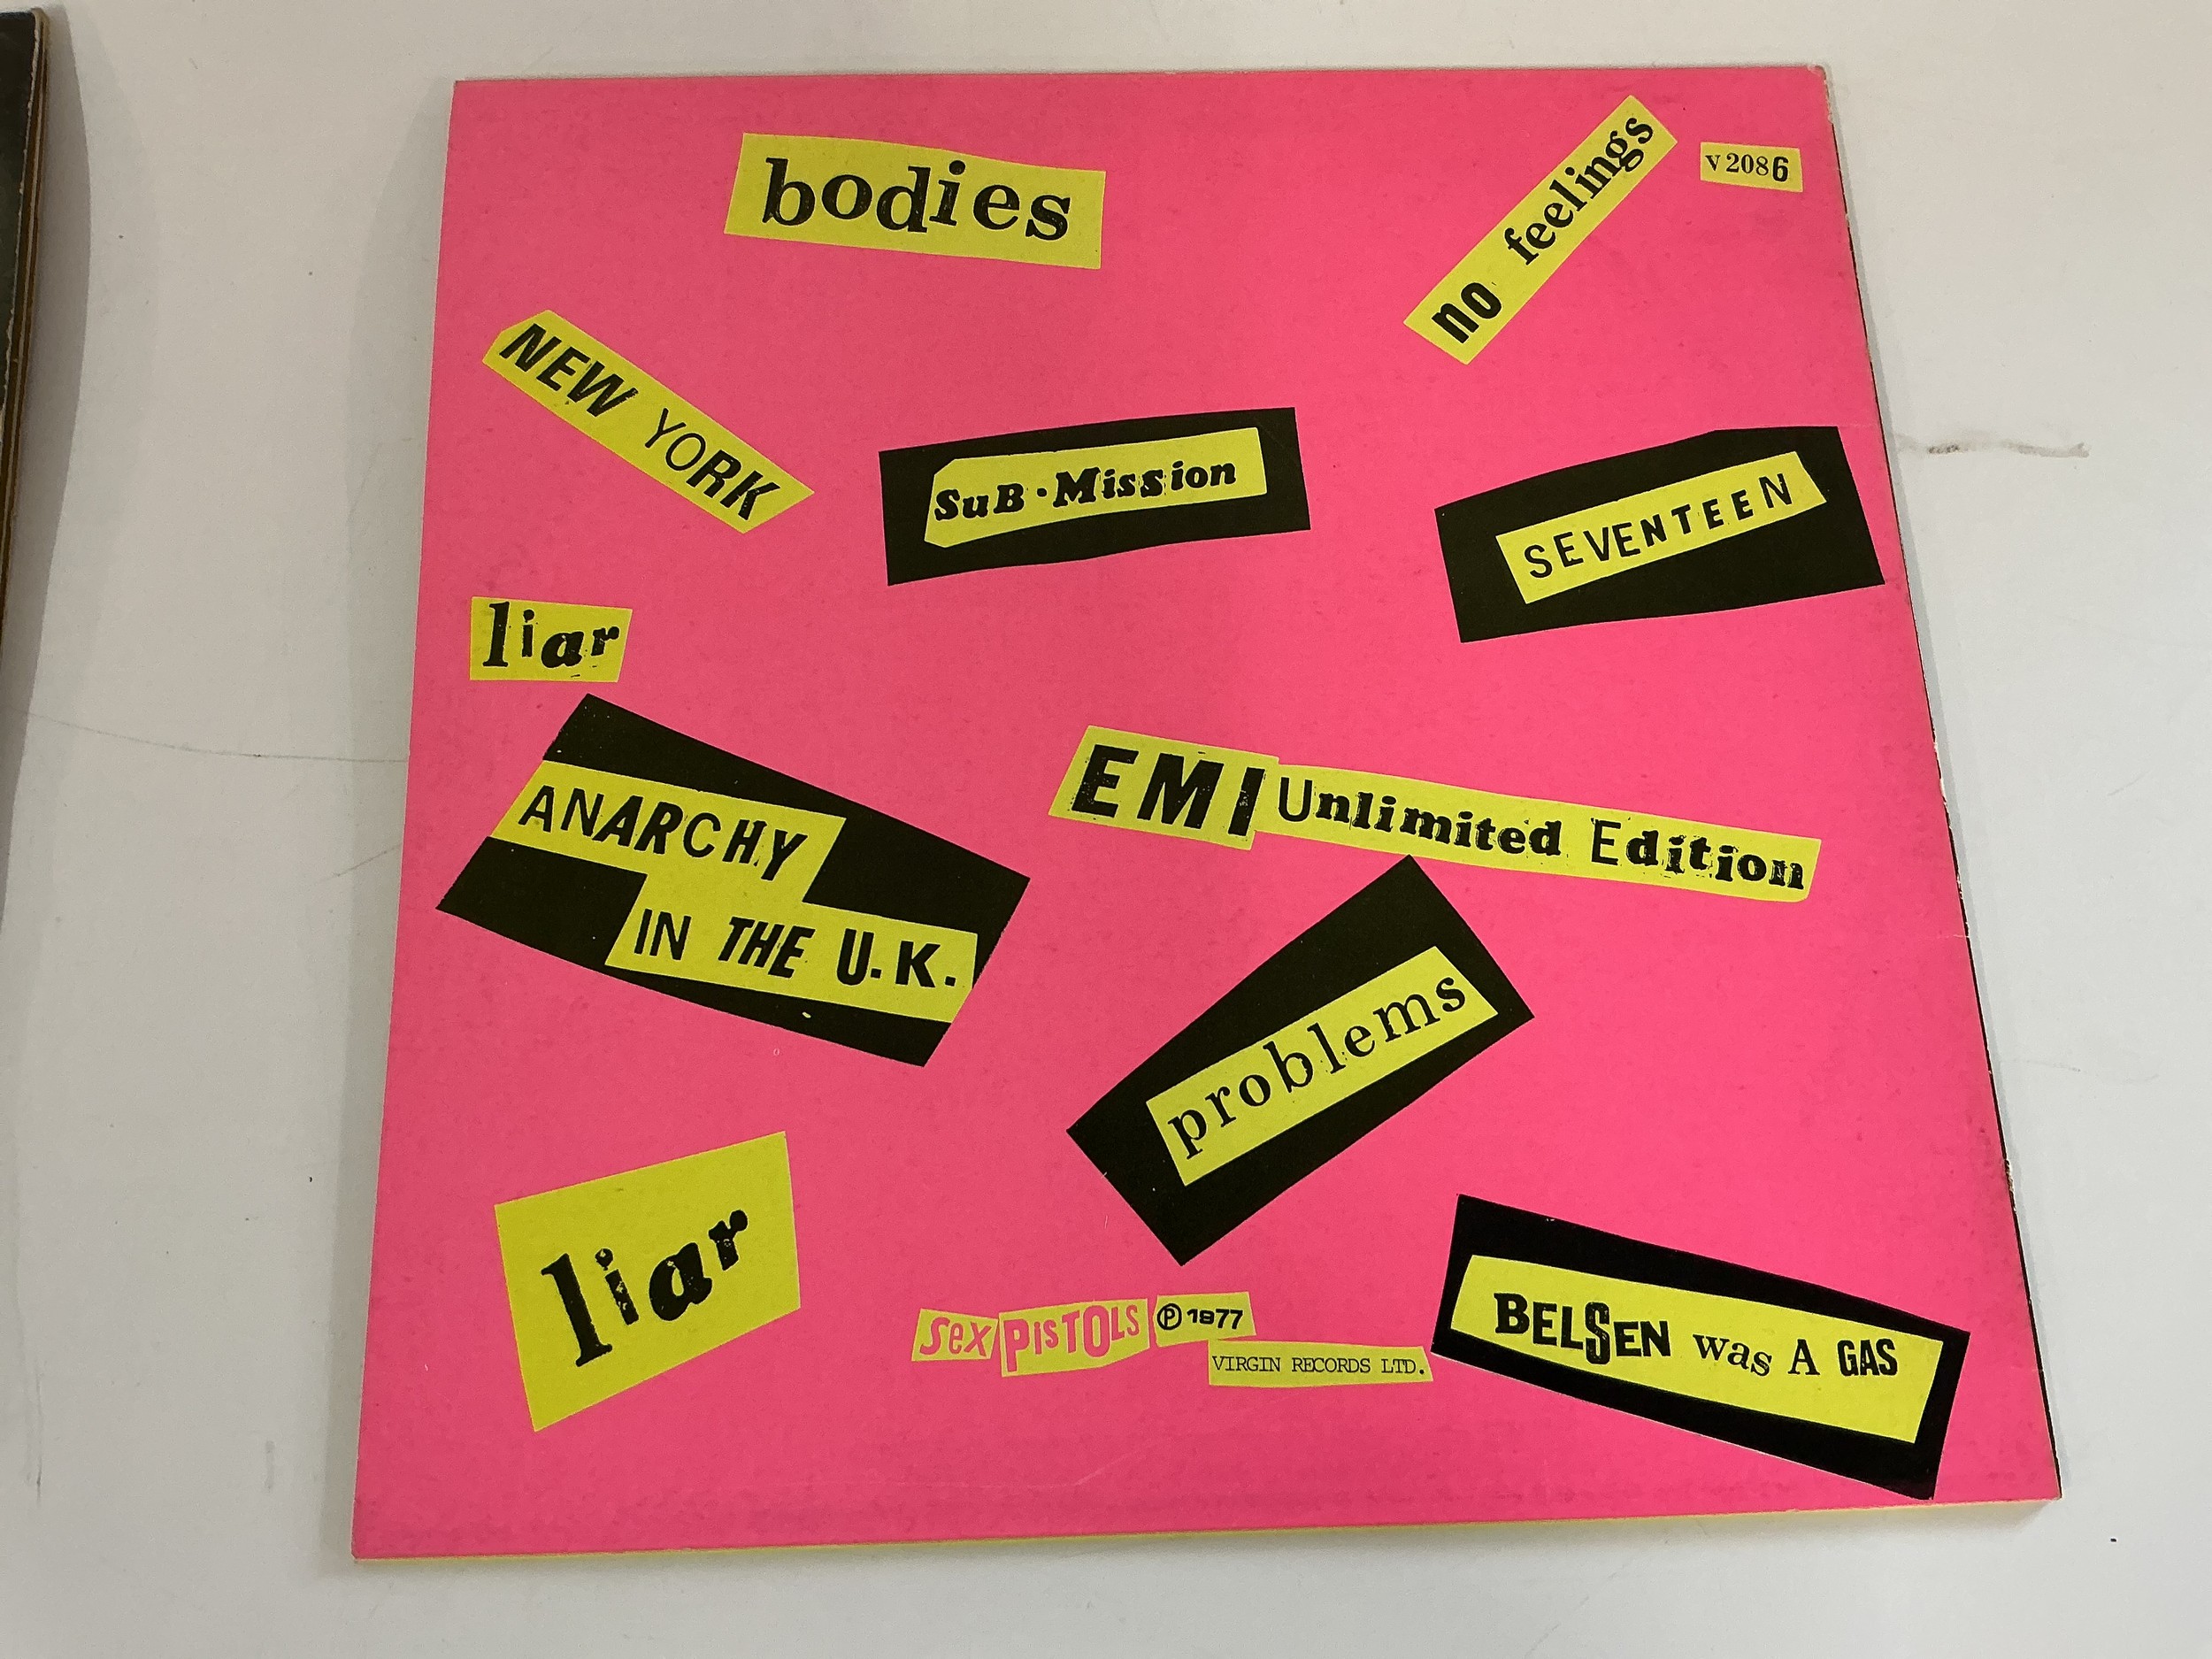 bodies
no feelings
V 2086
NEW YORK
SuB·Mission
SEVENTEEN
liar
ANARCHY
IN THE U.K.
EMI Unlimited Edition
problems
liar
sex PisTOLs ℗ 1977
VIRGIN RECORDS LTD.
BELSEN was A GAS